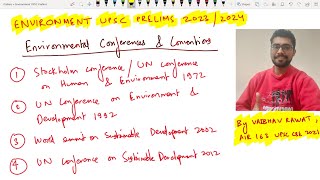 ENVIRONMENT UPSC PRELIMS 2023/2024
Environmental Conferences & Conventions
① Stockholm Conference / UN Conference
on Human & Environment 1972
② UN Conference on Environment &
Development 1992
③ World summit on Sustainable Development 2002
④ UN Conference on Sustainable Development 2012
By VAIBHAV RAWAT,
AIR 163 UPSC CSE 2021